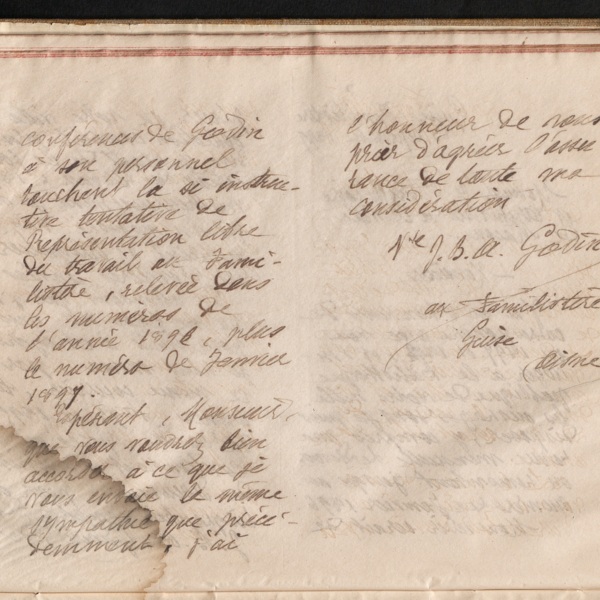 conférences de Godin
à son personnel
touchant la si instruc-
tive tentative de
Représentation libre
du travail au Fami-
listère, relevée dans
les numéros de
l'année 1896, plus
le numéro de Janvier
1897.
Espérant, Monsieur,
que vous voudrez bien
accorder à ce que je
vous envoie la même
sympathie que précé-
demment, j'ai
l'honneur de vous
prier d'agréer l'assu
rance de toute ma
considération
Vve J. B. A. Godin
au Familistère
Guise
Aisne